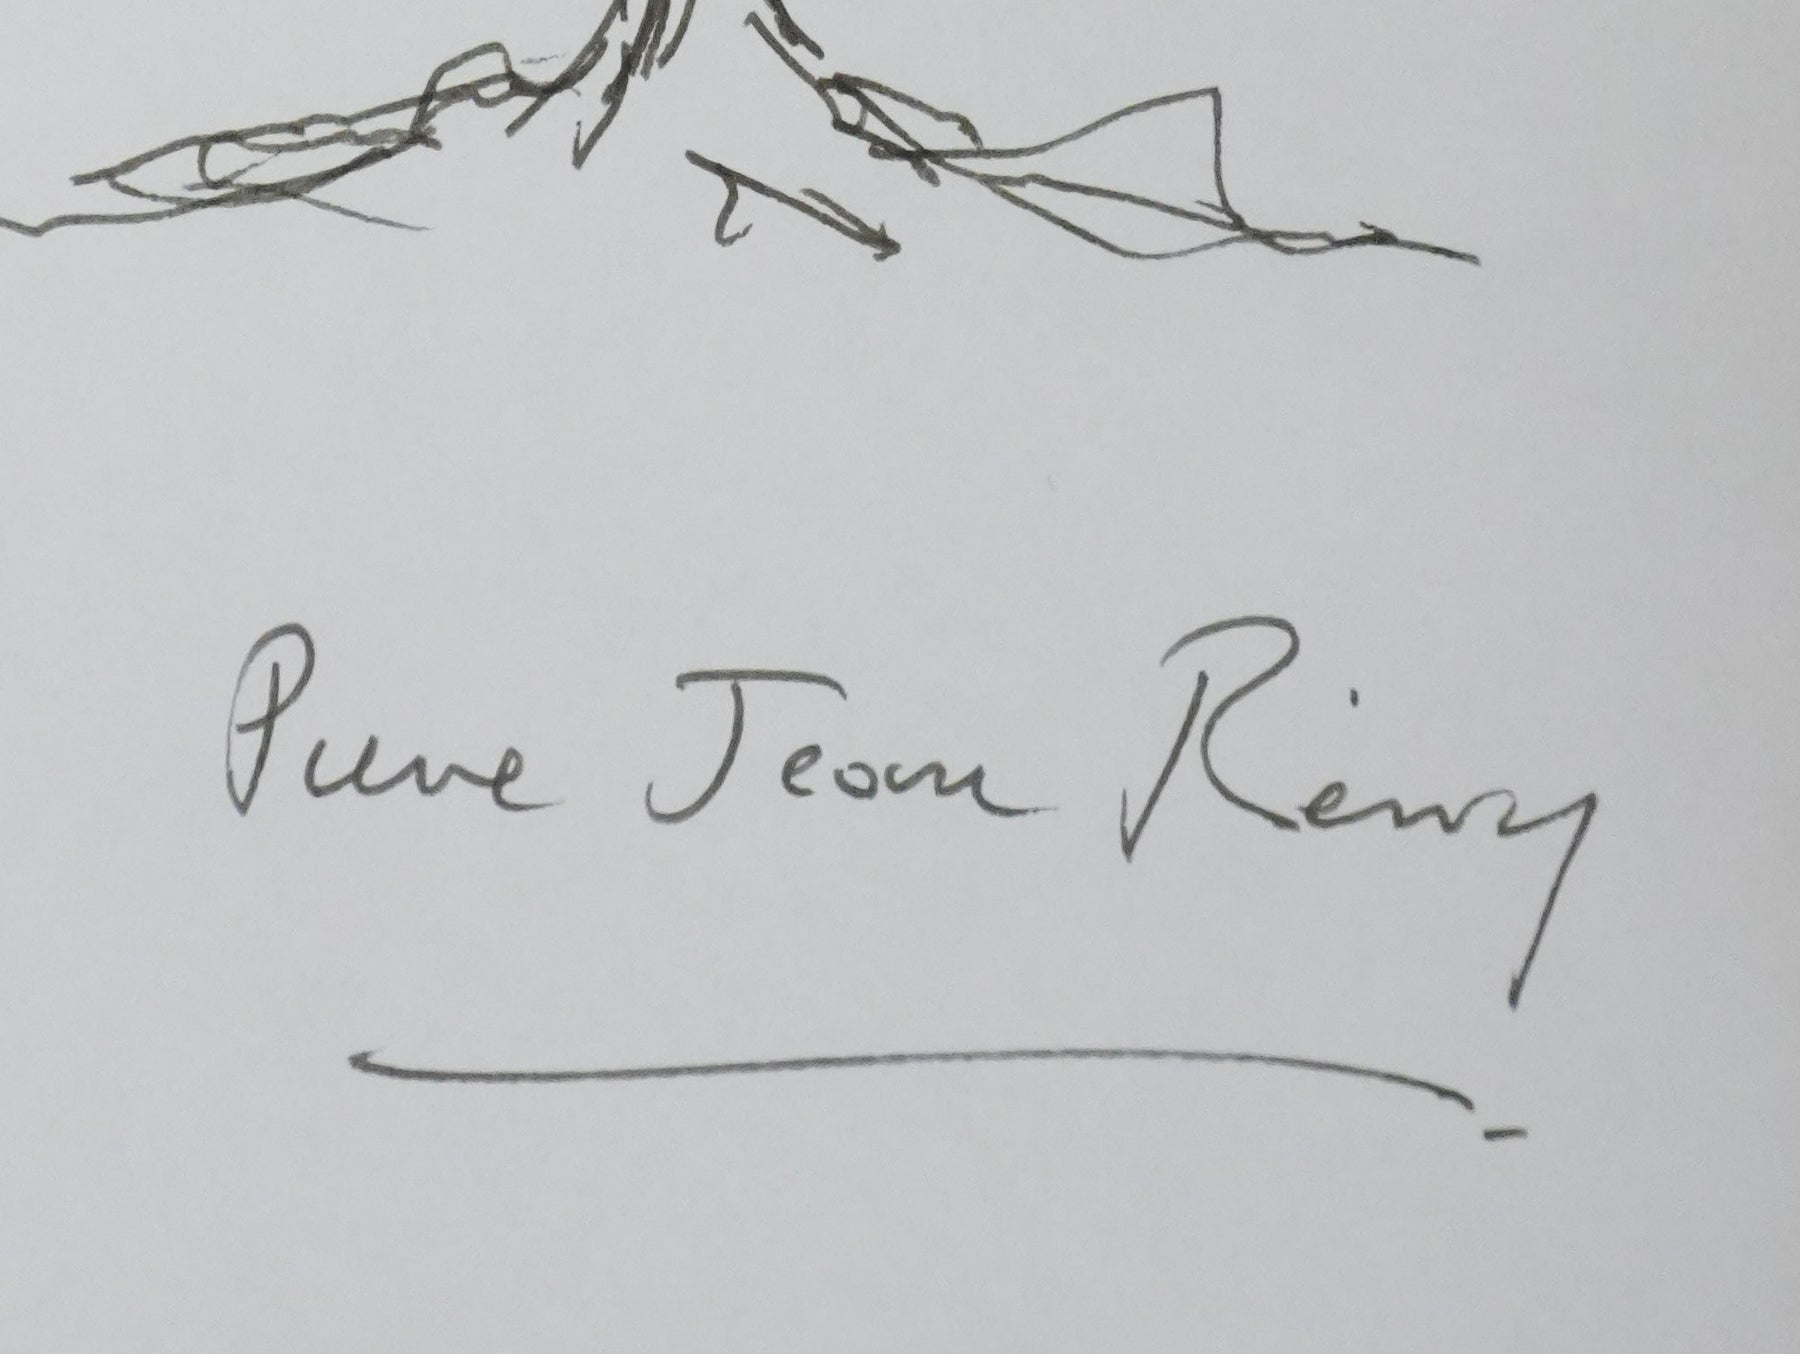 Pierre Jean Rémy